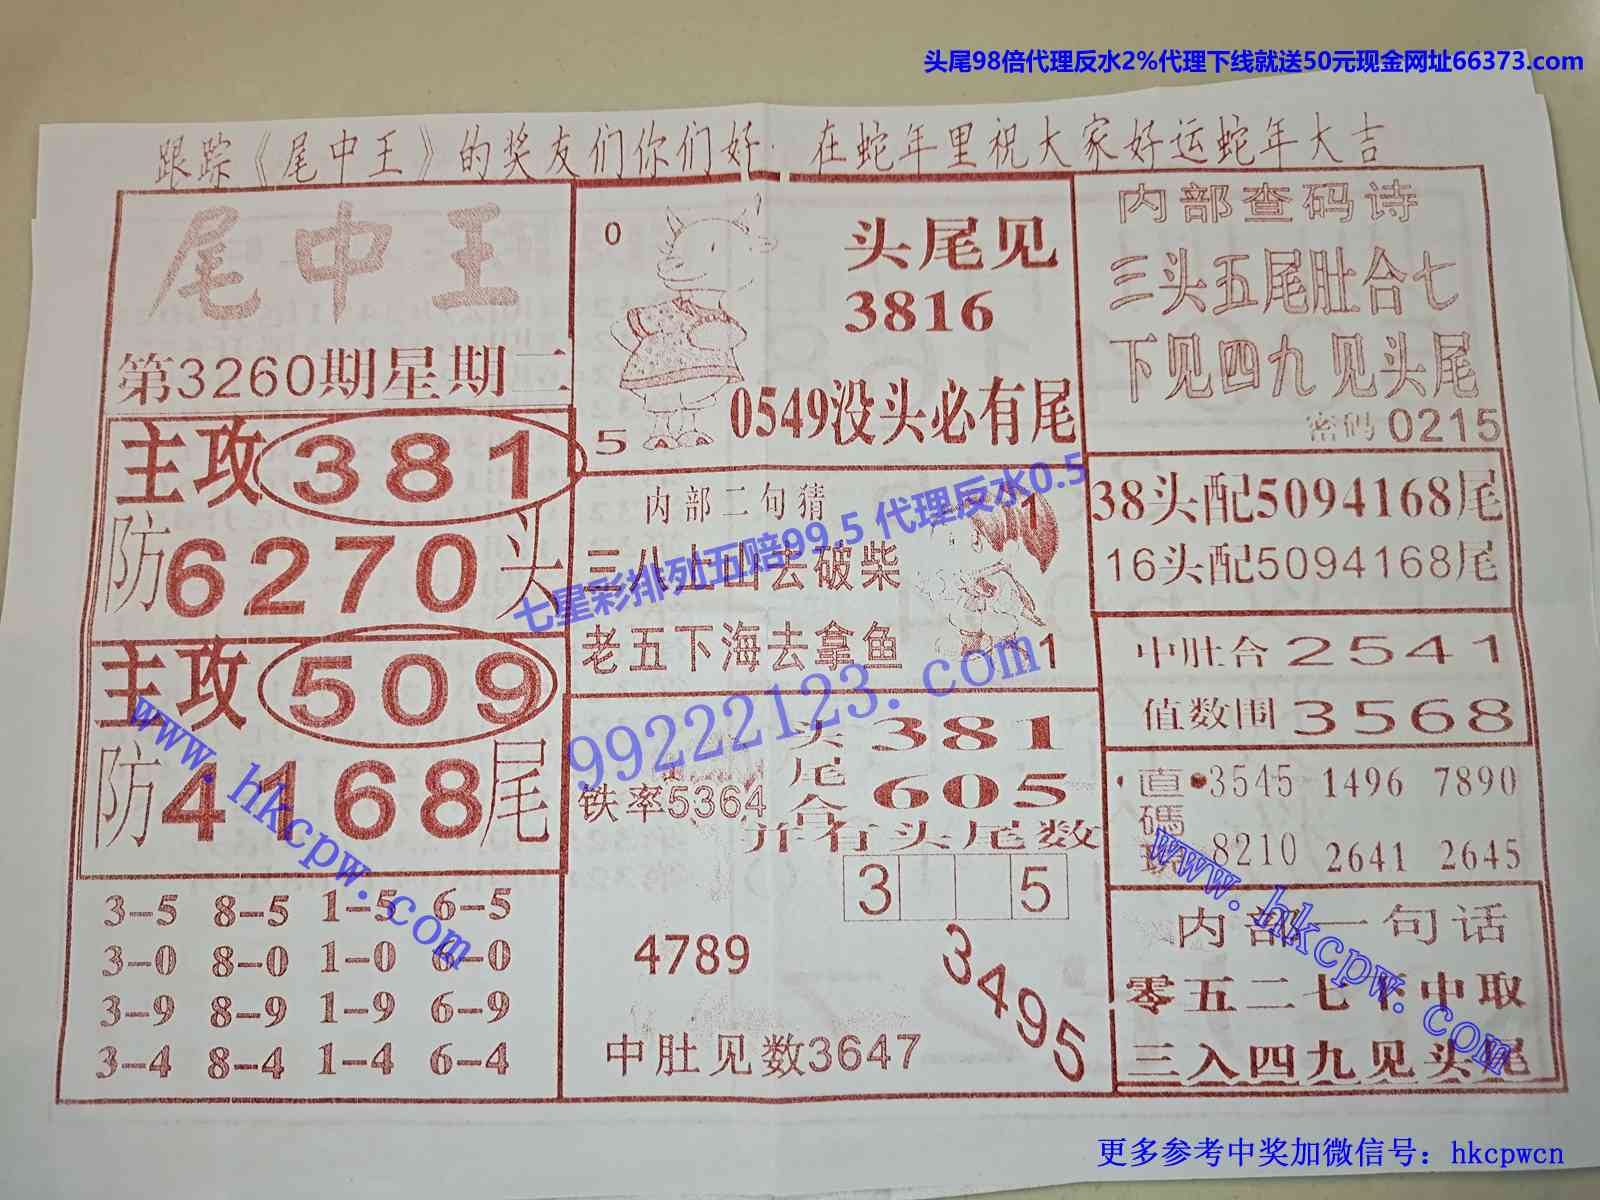 头尾98倍代理反水2%代理下线就送50元现金网址66373.com
跟踪《尾中王》的奖友们你们好·在蛇年里祝大家好运蛇年大吉
尾中王
第3260期星期二
主攻381
防6270头
主攻509
防4168尾
3-5 8-5 1-5 6-5
3-0 8-0 1-0 6-0
3-9 8-9 1-9 6-9
3-4 8-4 1-4 6-4
0
5
头尾见
3816
0549没头必有尾
内部二句猜
三八上山去破柴
老五下海去拿鱼
1
1
七星彩排列五赔99.5 代理反水0.5
99222123.com
头381
尾
合605
铁率5364
并有头尾数
3 5
4789
3495
中肚见数3647
内部查码诗
三头五尾肚合七
下见四九见头尾
密码0215
38头配5094168尾
16头配5094168尾
中肚合2541
值数围3568
直碼
3545 1496 7890
8210 2641 2645
内部一句话
零五二七 中取
三入四九见头尾
www.hkcpw.com
www.hkcpw.com
更多参考中奖加微信号：hkcpwcn